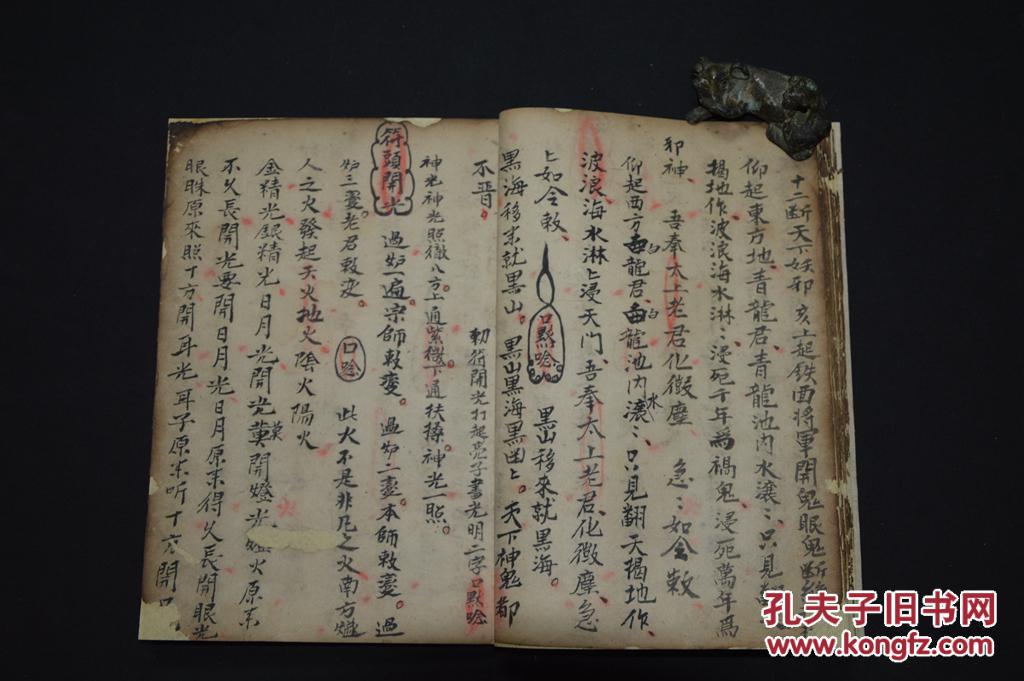 十二断天下妖邪 亥上起鉄面將軍開鬼眼鬼断
仰起東方地青龍君青龍池内水濠ミ只見
揭地作波浪海水淋ミ浸死千年爲禍鬼浸死萬年爲
邪神、 吾奉太上老君化微塵 急ミ如令敕
仰起西方白龍君白龍池内水濠ミ只見翻天揭地作、
波浪海水淋ヒ浸天门、吾奉太上老君、化微塵、急
ヒ如令敕、 口黙唸 黑山移來就黑海。
黑海移來就黑山。黑山黑海黑ヒ。天下神鬼都
不晋。 勅符開光打起亮子書光明二字口黙唸
神光神光照徹八方上通紫微下通扶搡神光一照。
符頭開光 過炉一遍宗師敕变。過炉二盏本師敕盏。過
炉三盏老君敕变。 口唸 此火不是非凡之火南方
人之火發起天火地火陰火陽火
金精光銀精光日月光開光開燈光火原来
不久長開光要開日月光日月原来得久長開眼光
眼睐原來照十方開耳光耳子原来听十方開口
孔夫子旧书网
www.kongfz.com